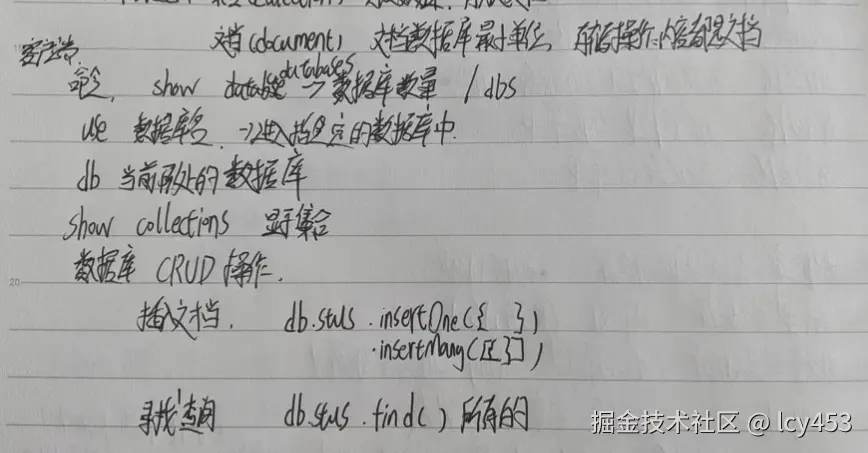 文档(document) 文档数据库最小单位, 所有操作内容都是文档
客户端
命令, show database databases → 数据库数量 / dbs
use 数据库名 → 进入指定的数据库中
db 当前所处的数据库
show collections 显示集合
数据库 CRUD 操作.
插入文档, db.stus.insertOne({ })
.insertMany([{}])
寻找查询 db.stus.find() 所有的
掘金技术社区 @ lcy453
20